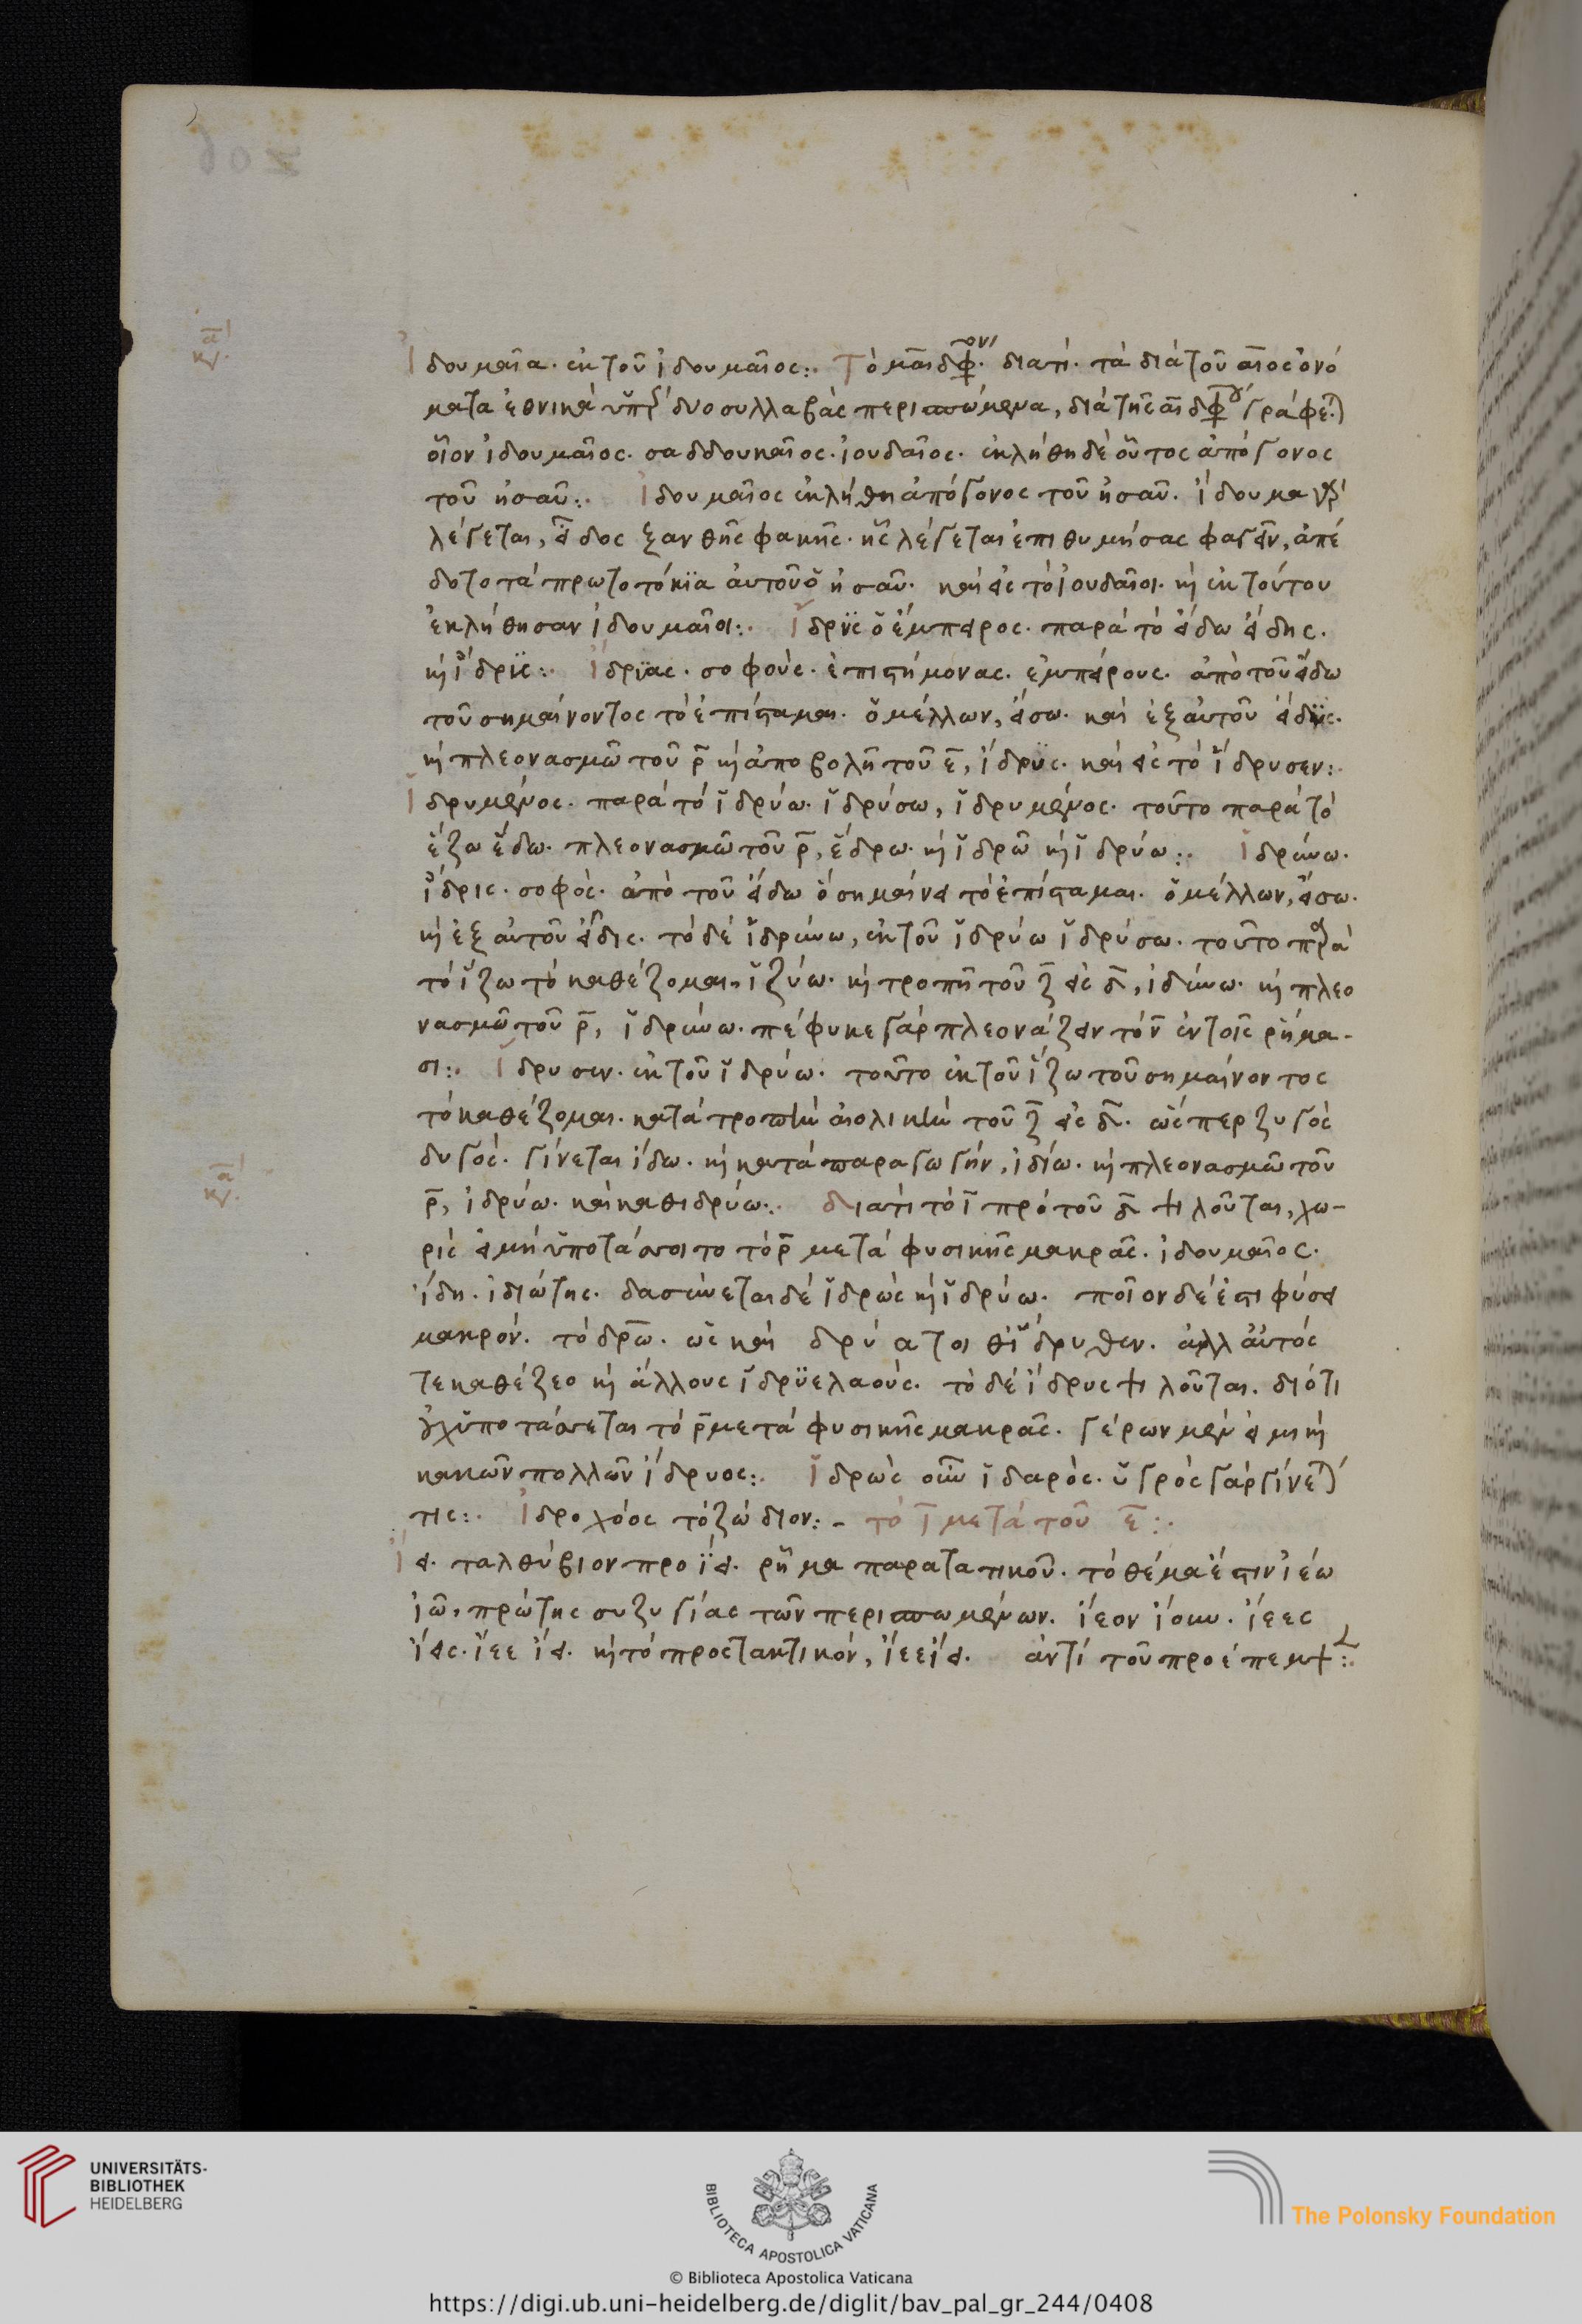 Ἰδουμαῖα. ἐκ τοῦ ἰδουμαῖος:. Τὸ μαῖ δίφθογγον. διατί. τὰ διὰ τοῦ αῖος ὀνό
ματα ἐθνικὰ ὑπὲρ δύο συλλαβὰς περισπώμενα, διὰ τῆς αῖ διφθόγγου γράφεται
οἷον ἰδουμαῖος. σαδδουκαῖος. ἰουδαῖος. ἐκλήθη δὲ οὗτος ἀπόγονος
τοῦ ἠσαῦ:. Ἰδουμαῖος ἐκλήθη ἀπόγονος τοῦ ἠσαῦ. ἰδουμα γὰρ
λέγεται, εἶδος ξανθῆς φακῆς. ἧς λέγεται ἐπιθυμήσας φαγεῖν, ἀπέ
δοτο τὰ πρωτοτόκια αὐτοῦ ὁ ἠσαῦ. καὶ εἰς τὸ ἰουδαῖοι. καὶ ἐκ τούτου
ἐκλήθησαν ἰδουμαῖοι:. Ἴδρϊς ὁ ἔμπειρος. παρὰ τὸ εἴδω εἴδης.
καὶ ἴδρϊς:. Ἴδριας. σοφούς. ἐπιστήμονας. ἐμπείρους. ἀπὸ τοῦ εἴδω
τοῦ σημαίνοντος τὸ ἐπίσταμαι. ὁ μέλλων, εἴσω. καὶ ἐξ αὐτοῦ εἴδϋς.
καὶ πλεονασμῶ τοῦ ρ̄ καὶ ἀποβολῆ τοῦ ε̄, ἴδρϋς. καὶ εἰς τὸ ἵδρυσεν:.
Ἱδρυμένος. παρὰ τὸ ἱδρύω. ἱδρύσω, ἱδρυμένος. τοῦτο παρὰ τὸ
ἕζω ἕδω. πλεονασμῶ τοῦ ρ̄, ἕδρω. καὶ ἱδρῶ καὶ ἱδρύω:. Ἱδρύνω.
ἴδρις. σοφός. ἀπὸ τοῦ εἴδω ὃ σημαίνει τὸ ἐπίσταμαι. ὁ μέλλων, εἴσω.
καὶ ἐξ αὐτοῦ εἶδις. τὸ δὲ ἱδρύνω, ἐκ τοῦ ἱδρύω ἱδρύσω. τοῦτο παρὰ
τὸ ἵζω τὸ καθέζομαι, ἱζύω. καὶ τροπῆ τοῦ ζ̄ εἰς δ̄, ἰδύνω. καὶ πλεο
νασμῶ τοῦ ρ̄, ἱδρύνω. πέφυκε γὰρ πλεονάζειν τὸ ν̄ ἐν τοῖς ρήμα-
σι:. Ἵδρυσεν. ἐκ τοῦ ἱδρύω. τοῦτο ἐκ τοῦ ἵζω τοῦ σημαίνοντος
τὸ καθέζομαι. κατὰ τροπὴν αἰολικὴν τοῦ ζ̄ εἰς δ̄. ὥσπερ ζυγὸς
δυγός. γίνεται ἴδω. καὶ κατὰ παραγωγήν, ἰδίω. καὶ πλεονασμῶ τοῦ
ρ̄, ἰδρύω. καὶ καθιδρύω:. Διατί τὸ ῑ πρὸ τοῦ δ̄ ψιλοῦται, χω-
ρὶς εἰ μὴ ὑποτάσσοιτο τὸ ρ̄ μετὰ φυσικῆς μακρᾶς. ἰδουμαῖος.
ἴδη. ἰδιώτης. δασύνεται δὲ ἱδρὼς καὶ ἱδρύω. ποῖον δέ ἐστι φύσει
μακρόν. τὸ δρῶ. ὡς καὶ δρύ α τοι θῒ ἵδρυθεν. ἀλλ αὐτός
τε καθέζεο καὶ ἄλλους ἵδρϋε λαούς. τὸ δὲ ἴδρυς ψιλοῦται. διότι
οὐχ ὑποτάσσεται τὸ ρ̄ μετὰ φυσικῆς μακρᾶς. γέρων μὲν εἰμὶ καὶ
κακῶν πολλῶν ἴδρυος:. Ἱδρὼς οἷον ἱδαρός. ὑγρὸς γὰρ γίνεταί
τις:. Ἰδροχόος τὸ ζώδιον:- τὸ ῑ μετὰ τοῦ ε̄:.
Ἵει. ταλθύβιον προΐει. ρῆμα παρατατικοῦ. τὸ θέμα ἐστὶν ἰέω
ἰῶ, πρώτης συζυγίας τῶν περισπωμένων. ἵεον ἵουν. ἵεες
ἵεις. ἵεε ἵει. καὶ τὸ προστακτικόν, ἵεε ἵει. ἀντὶ τοῦ προέπεμψεν:.
© Biblioteca Apostolica Vaticana
UNIVERSITÄTS-
BIBLIOTHEK
HEIDELBERG
BIBLIOTECA APOSTOLICA VATICANA
The Polonsky Foundation
https://digi.ub.uni-heidelberg.de/diglit/bav_pal_gr_244/0408